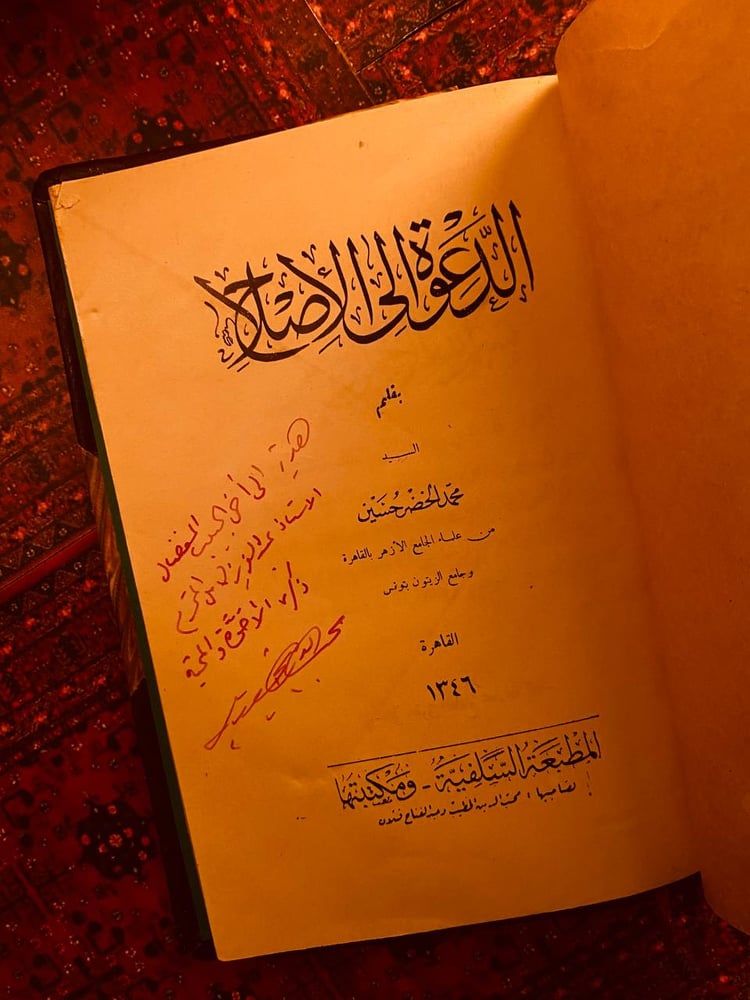 الدَّعْوَةُ إِلَى الْإِصْلَاحِ
بقلم
السيد
محمّد الخضر حُسَين
من علماء الجامع الأزهر بالقاهرة
وجامع الزيتون بتونس
القاهرة
١٣٤٦
المطبَعَة السَّلفيَّة - ومكتبتها
لصاحبيها : محب الدين الخطيب وعبد الفتاح قتلان
هدية إلى أخي الحبيب المفضال
الاستاذ عبد العزيز المحترم
ذكرى الأخوّة والمحبة